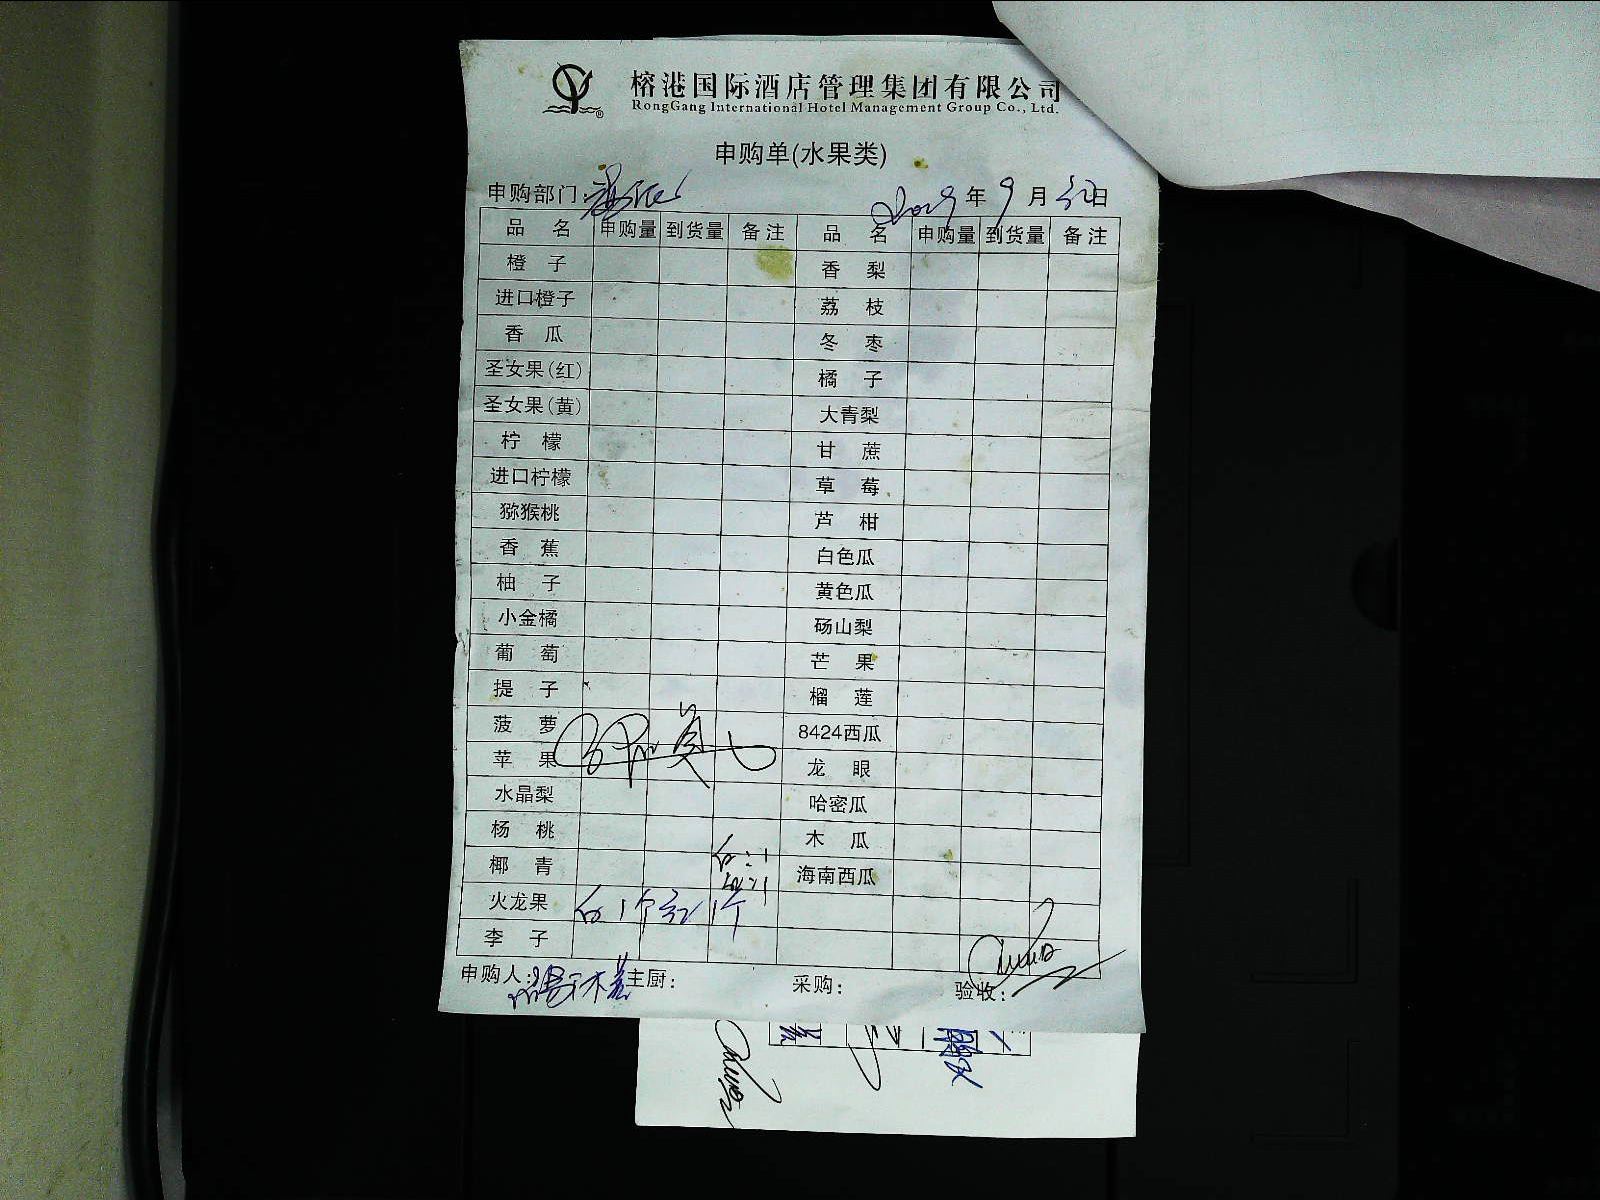 榕港国际酒店管理集团有限公司
RongGang International Hotel Management Group Co., Ltd.
申购单(水果类)
申购部门: 2019年9月30日
品名 申购量 到货量 备注 品名 申购量 到货量 备注
橙子 香梨
进口橙子 荔枝
香瓜 冬枣
圣女果(红) 橘子
圣女果(黄) 大青梨
柠檬 甘蔗
进口柠檬 草莓
猕猴桃 芦柑
香蕉 白色瓜
柚子 黄色瓜
小金橘 砀山梨
葡萄 芒果
提子 榴莲
菠萝 8424西瓜
苹果 龙眼
水晶梨 哈密瓜
杨桃 木瓜
椰青 海南西瓜
火龙果 白1个红1个
李子
申购人: 主厨: 采购: 验收: